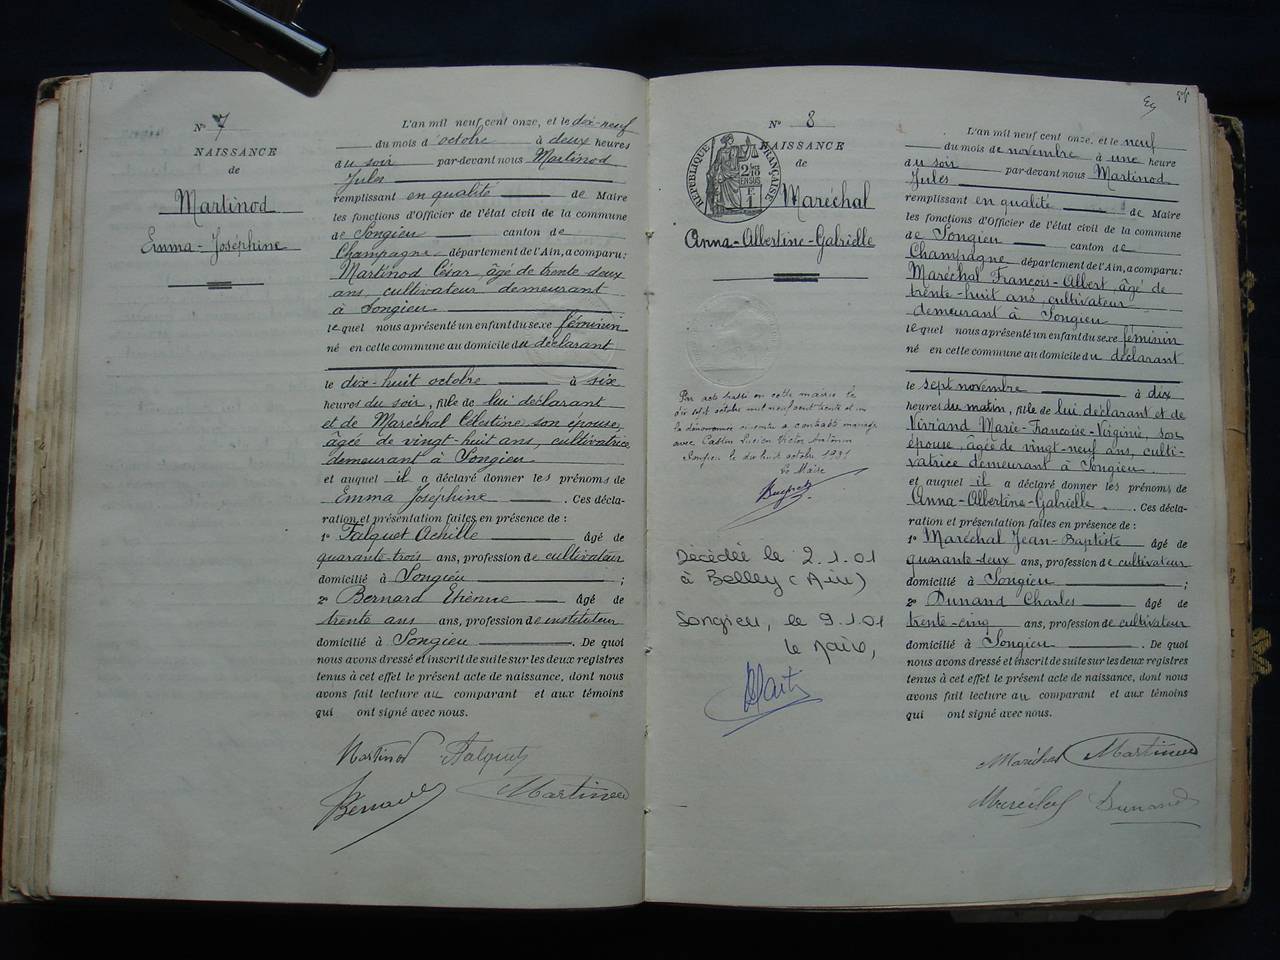 Nº 7
NAISSANCE
de
Martinod
Emma-Joséphine
L'an mil neuf cent onze, et le dix-neuf
du mois d'octobre à deux heures
du soir par-devant nous Martinod
Jules
remplissant en qualité de Maire
les fonctions d'Officier de l'état civil de la commune
de Songieu canton de
Champagne département de l'Ain, a comparu:
Martinod César, âgé de trente deux
ans, cultivateur demeurant
à Songieu
lequel nous a présenté un enfant du sexe féminin
né en cette commune au domicile du déclarant
le dix-huit octobre à six
heures du soir, fille de lui déclarant
et de Maréchal Célestine son épouse,
âgée de vingt-huit ans, cultivatrice
demeurant à Songieu
et auquel il a déclaré donner les prénoms de
Emma Joséphine . Ces décla-
ration et présentation faites en présence de :
1º Falquet Achille âgé de
quarante-trois ans, profession de cultivateur
domicilié à Songieu ;
2º Bernard Etienne âgé de
trente ans, profession de instituteur
domicilié à Songieu . De quoi
nous avons dressé et inscrit de suite sur les deux registres
tenus à cet effet le présent acte de naissance, dont nous
avons fait lecture au comparant et aux témoins
qui ont signé avec nous.
Martinod Falquet
Bernard Martinod
59
Nº 8
NAISSANCE
de
RÉPUBLIQUE FRANÇAISE
Maréchal
Anna-Albertine-Gabrielle
Par acte en cette mairie le
dix sept octobre mil neuf cent trente et un
la dénommée a contracté mariage
avec Lucien Victor Antonin
Songieu le dix huit octobre 1931
Le Maire
Décédée le 2.1.01
à Belley (Ain)
Songieu, le 9.1.01
le Maire,
L'an mil neuf cent onze, et le neuf
du mois de novembre à une heure
du soir par-devant nous Martinod
Jules
remplissant en qualité de Maire
les fonctions d'Officier de l'état civil de la commune
de Songieu canton de
Champagne département de l'Ain, a comparu:
Maréchal François-Albert, âgé de
trente-huit ans, cultivateur
demeurant à Songieu
lequel nous a présenté un enfant du sexe féminin
né en cette commune au domicile du déclarant
le sept novembre à dix
heures du matin, fille de lui déclarant et de
Marie-Françoise-Virginie, son
épouse, âgée de vingt-neuf ans, culti-
vatrice demeurant à Songieu
et auquel il a déclaré donner les prénoms de
Anna-Albertine-Gabrielle . Ces décla-
ration et présentation faites en présence de :
1º Maréchal Jean-Baptiste âgé de
quarante-deux ans, profession de cultivateur
domicilié à Songieu ;
2º Dunand Charles âgé de
trente-cinq ans, profession de cultivateur
domicilié à Songieu . De quoi
nous avons dressé et inscrit de suite sur les deux registres
tenus à cet effet le présent acte de naissance, dont nous
avons fait lecture au comparant et aux témoins
qui ont signé avec nous.
Maréchal Martinod
Maréchal Dunand